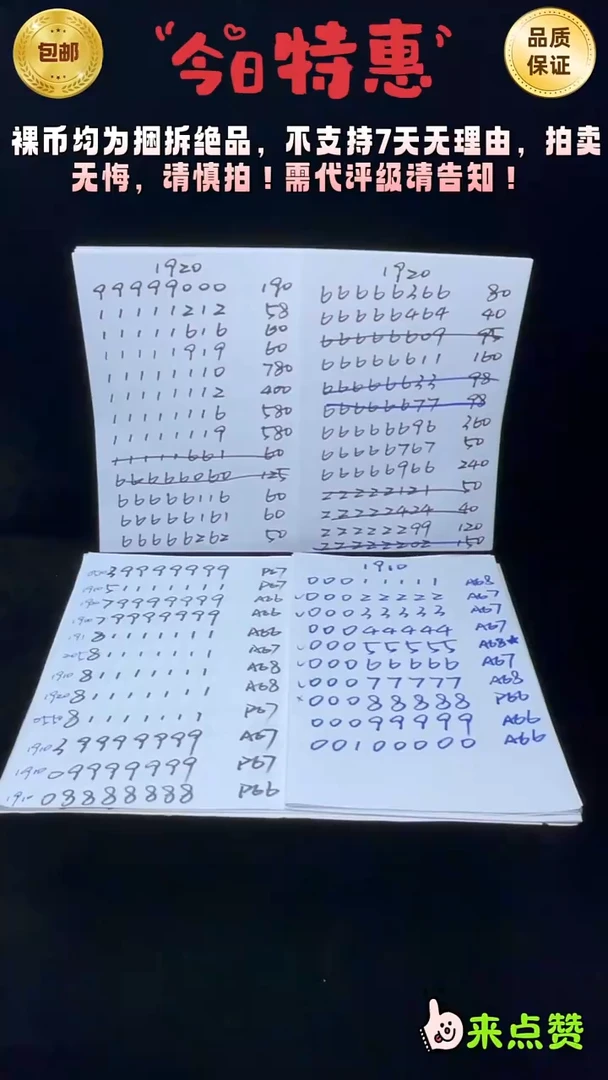 包邮
今日特惠
品质
保证
裸币均为捆拆绝品，不支持7天无理由，拍卖
无悔，请慎拍！需代评级请告知！
1920
99999000 190
11111212 58
11111616 60
11111919 60
11111110 780
11111112 400
11111116 580
11111119 580
11111661 60
66666060 125
66666116 60
66666161 60
66666262 50
1920
66666366 80
66666464 40
66666609 95
66666611 160
66666633 98
66666677 98
66666696 360
66666767 50
66666966 240
22222121 50
22222424 40
22222299 120
22222202 150
39999999 P67
51111111 P67
79999999 A66
1920 79999999 A67
81111111 A66
2058 1111111 A67
1910 81111111 A68
1920 81111111 A68
81111111 P67
1910 39999999 A67
1910 09999999 P67
1910 08888888 P66
1910
00011111 A68
00022222 A67
00033333 A67
00044444 A67
00055555 A68★
00066666 A67
00077777 A68
00088888 P66
00099999 A66
00100000 A66
来点赞